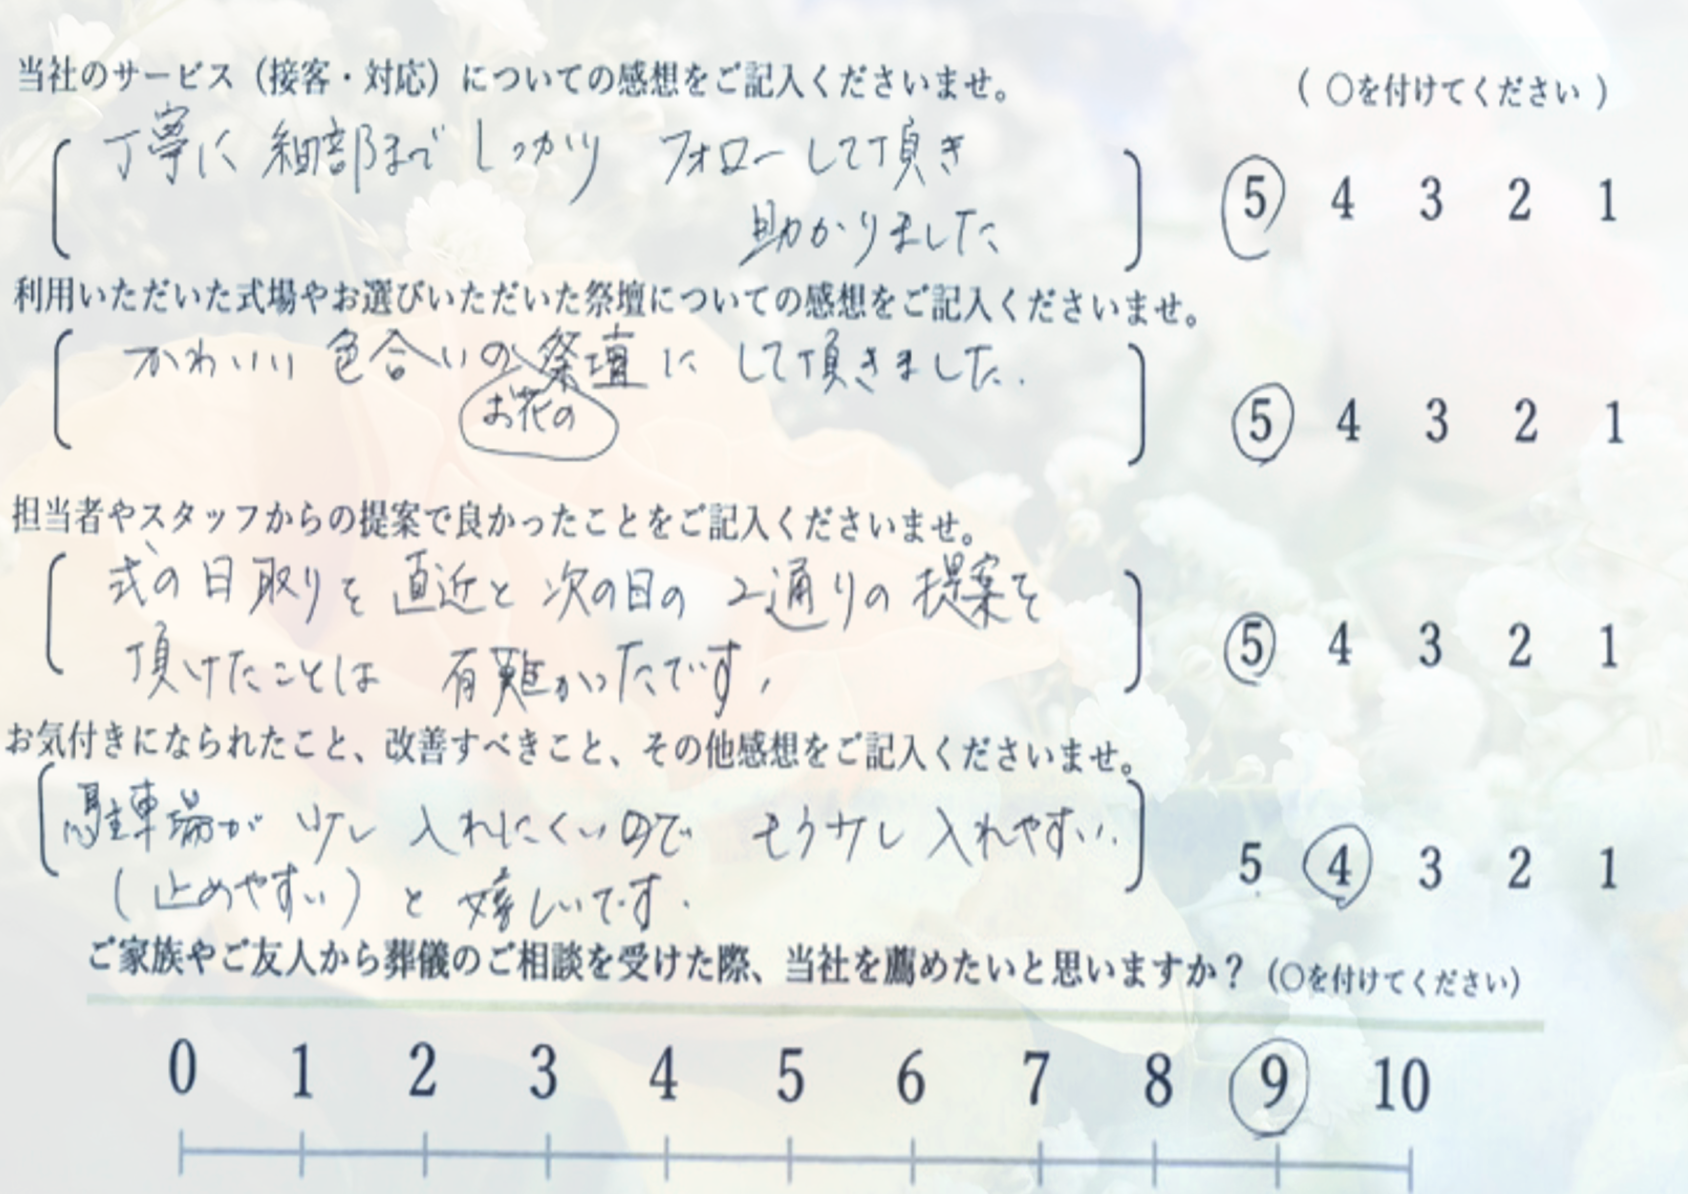 当社のサービス（接客・対応）についての感想をご記入くださいませ。 （ ○を付けてください ）
丁寧に 細部まで しっかり フォローして頂き
助かりました
5 4 3 2 1
利用いただいた式場やお選びいただいた祭壇についての感想をご記入くださいませ。
かわいい 色合いの 祭壇に して頂きました.
お花の
5 4 3 2 1
担当者やスタッフからの提案で良かったことをご記入くださいませ。
式の日取りを 直近と 次の日の 2通りの 提案を
頂けたことは 有難かったです,
5 4 3 2 1
お気付きになられたこと、改善すべきこと、その他感想をご記入くださいませ。
駐車場が 少し 入れにくいので もう少し 入れやすい.
（止めやすい）と 嬉しいです.
5 4 3 2 1
ご家族やご友人から葬儀のご相談を受けた際、当社を薦めたいと思いますか？（○を付けてください）
0 1 2 3 4 5 6 7 8 9 10